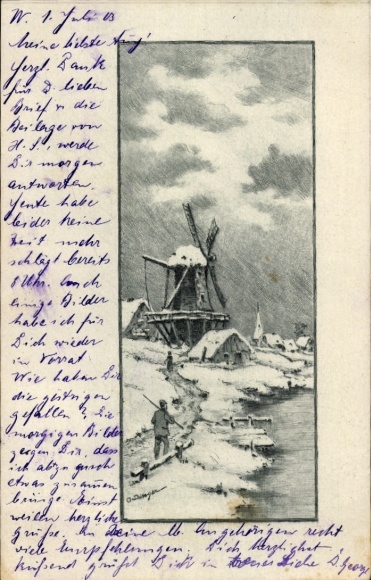 W. 1. Juli 03
Meine liebste
Herzl. Dank
für D. lieben
Brief u die
Beilage von
H. S., werde
Dir morgen
antworten.
Heute habe
leider keine
Zeit mehr
schlägt bereits
8 Uhr. Auch
einige Bilder
habe ich für
Dich wieder
in Vorrat
Wie haben Dir
die gestrigen
gefallen? Die
morgigen Bilder
zeigen Dir, dass
ich
etwas zusammen
bringe Einst
weilen herzliche
Grüße. An Deine lb. Angehörigen recht
viele Empfehlungen, Dich herzlichst
küssend grüßt Dich in Liebe D. Georg